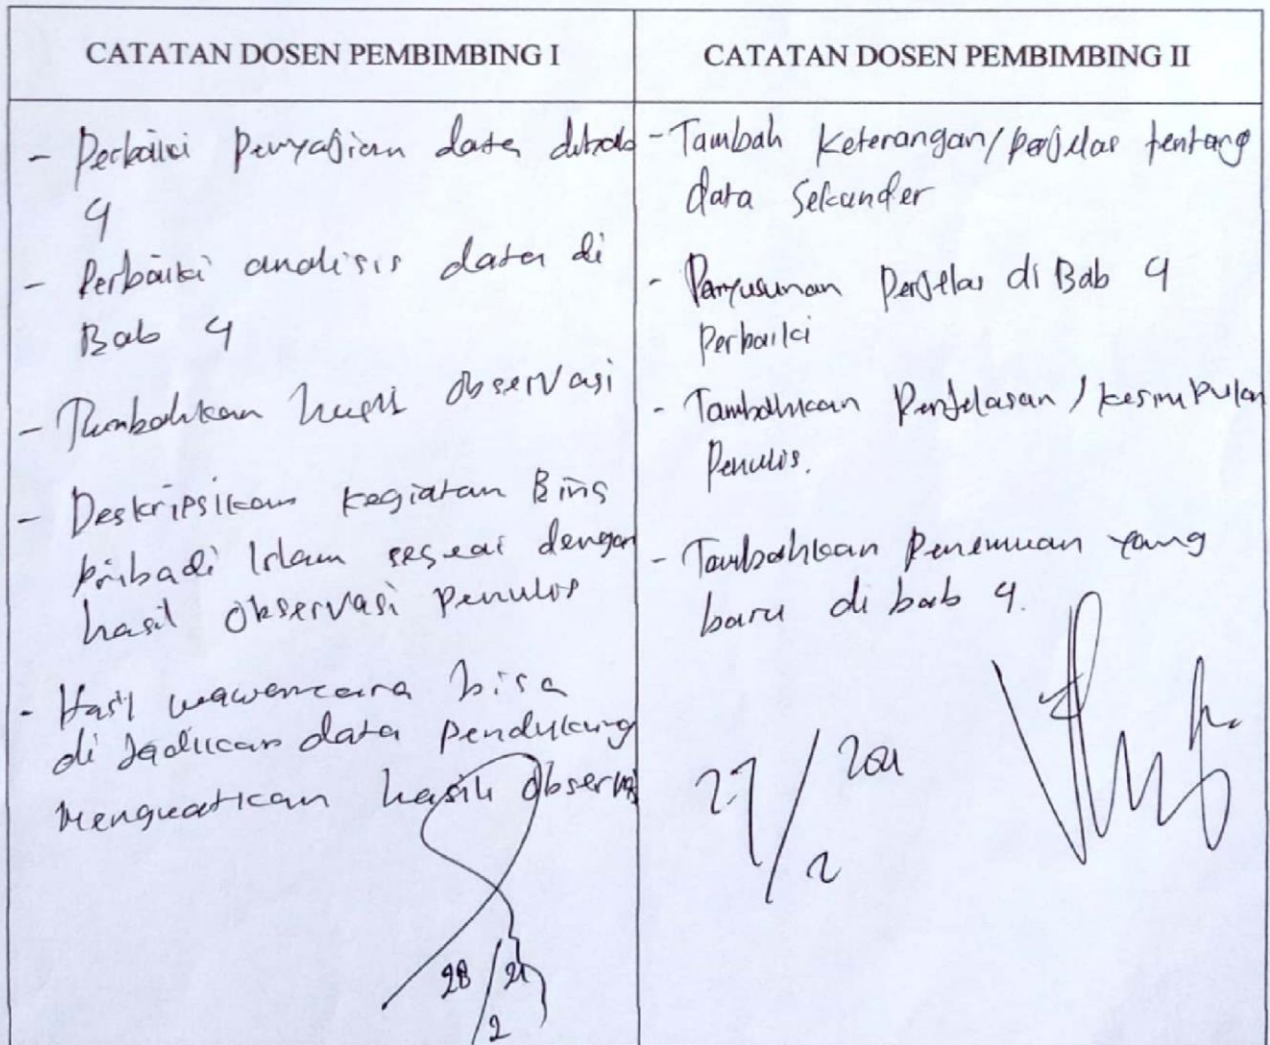 CATATAN DOSEN PEMBIMBING I
- Perbaiki Penyajian data dibab
4
- Perbaiki analisis data di
Bab 4
- Tambahkan hasil observasi
- Deskripsikan kegiatan Bina
pribadi Islam sesuai dengan
hasil observasi penulis
- Hasil wawancara bisa
di jadikan data pendukung
menguatkan hasil observasi
28/2 21
CATATAN DOSEN PEMBIMBING II
- Tambah keterangan/perjelas tentang
data Sekunder
- Penyusunan Perjelas di Bab 4
Perbaiki
- Tambahkan Penjelasan/kesimpulan
Penulis.
- Tambahkan Penemuan yang
baru di bab 4.
27/2 2021